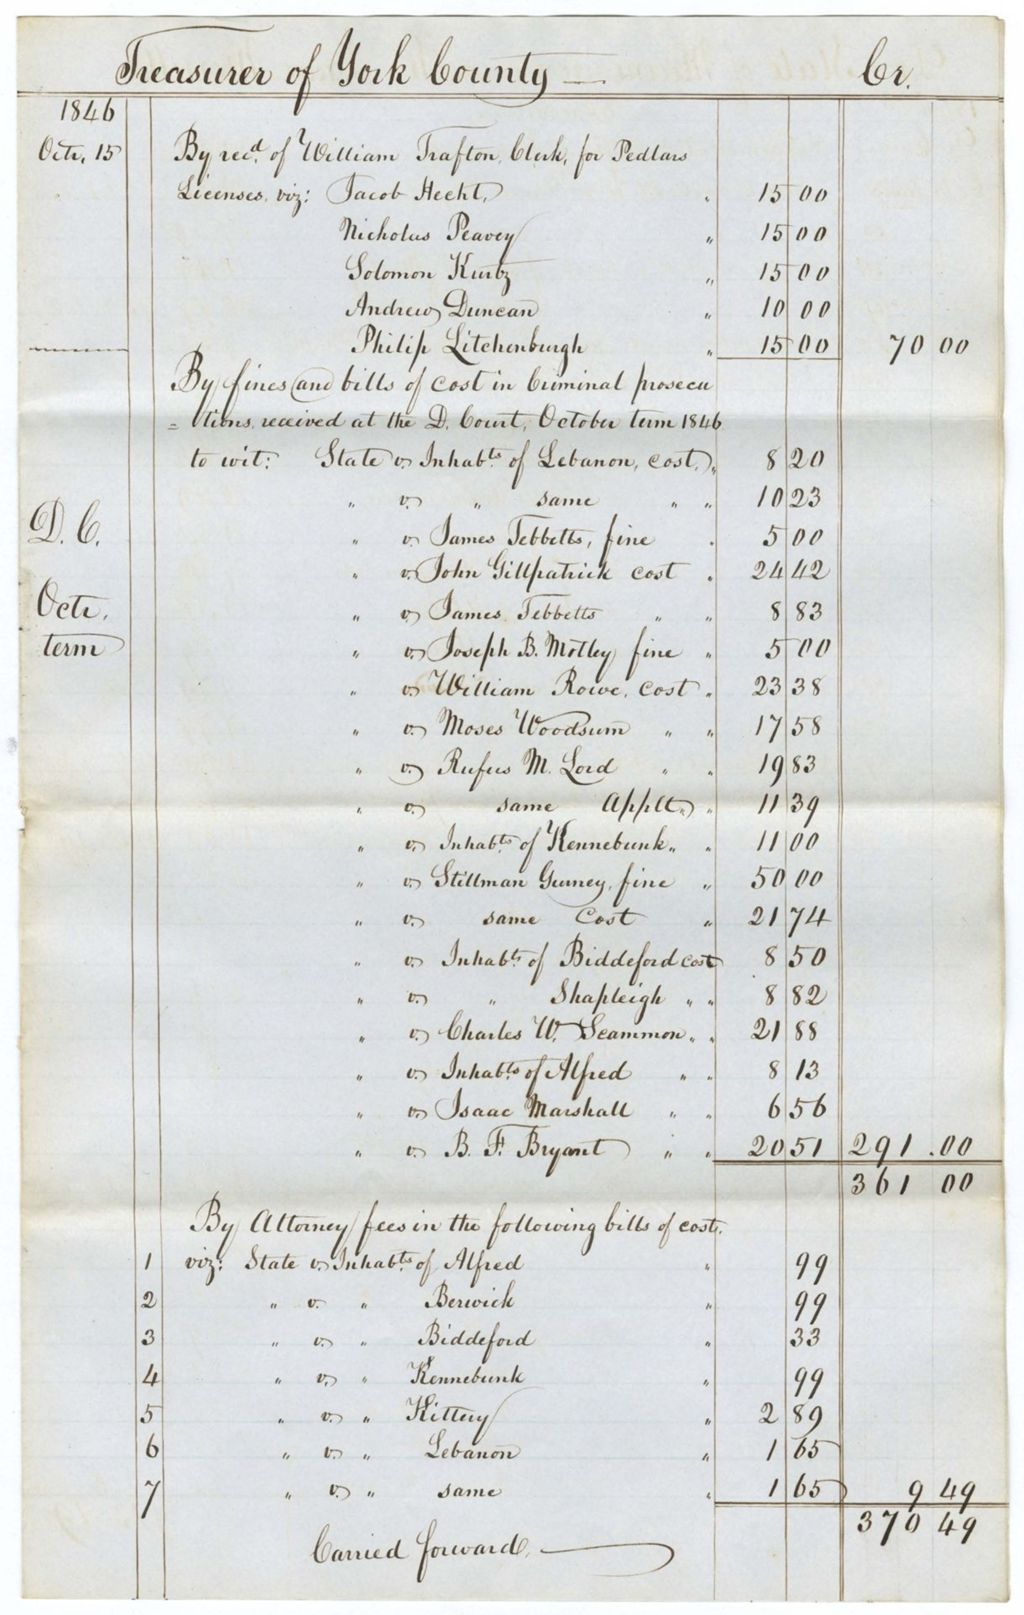 Treasurer of York County — Cr.
1846
Octr. 15 By recd. of William Trafton, Clerk, for Pedlars
Licenses, viz: Jacob Hecht, " 15 00
Nicholas Peavey " 15 00
Solomon Kurtz " 15 00
Andrew Duncan " 10 00
Philip Litchenburgh " 15 00 70 00
By fines and bills of cost in Criminal prosecu
=tions, received at the D. Court, October term 1846
to wit: State vs Inhabts of Lebanon, cost, " 8 20
" vs " same " " 10 23
D. C. " vs James Tebbetts, fine " 5 00
" vs John Gillpatrick cost " 24 42
Octr. " vs James Tebbetts " " 8 83
term " vs Joseph B. Motley fine " 5 00
" vs William Rowe, cost " 23 38
" vs Moses Woodsum " " 17 58
" vs Rufus M. Lord " " 19 83
" vs same Applt. " 11 39
" vs Inhabts of Kennebunk " " 11 00
" vs Stillman Gurney, fine " 50 00
" vs same Cost " 21 74
" vs Inhabts of Biddeford cost 8 50
" vs " Shapleigh " " 8 82
" vs Charles W. Scammon " " 21 88
" vs Inhabts of Alfred " " 8 13
" vs Isaac Marshall " " 6 56
" vs B. F. Bryant " " 20 51 291.00
361 00
By Attorney fees in the following bills of cost.
1 viz: State vs Inhabts of Alfred " 99
2 " vs " Berwick " 99
3 " vs " Biddeford " 33
4 " vs " Kennebunk " 99
5 " vs " Kittery " 2 89
6 " vs " Lebanon " 1 65
7 " vs " same " 1 65 9 49
370 49
Carried forward,